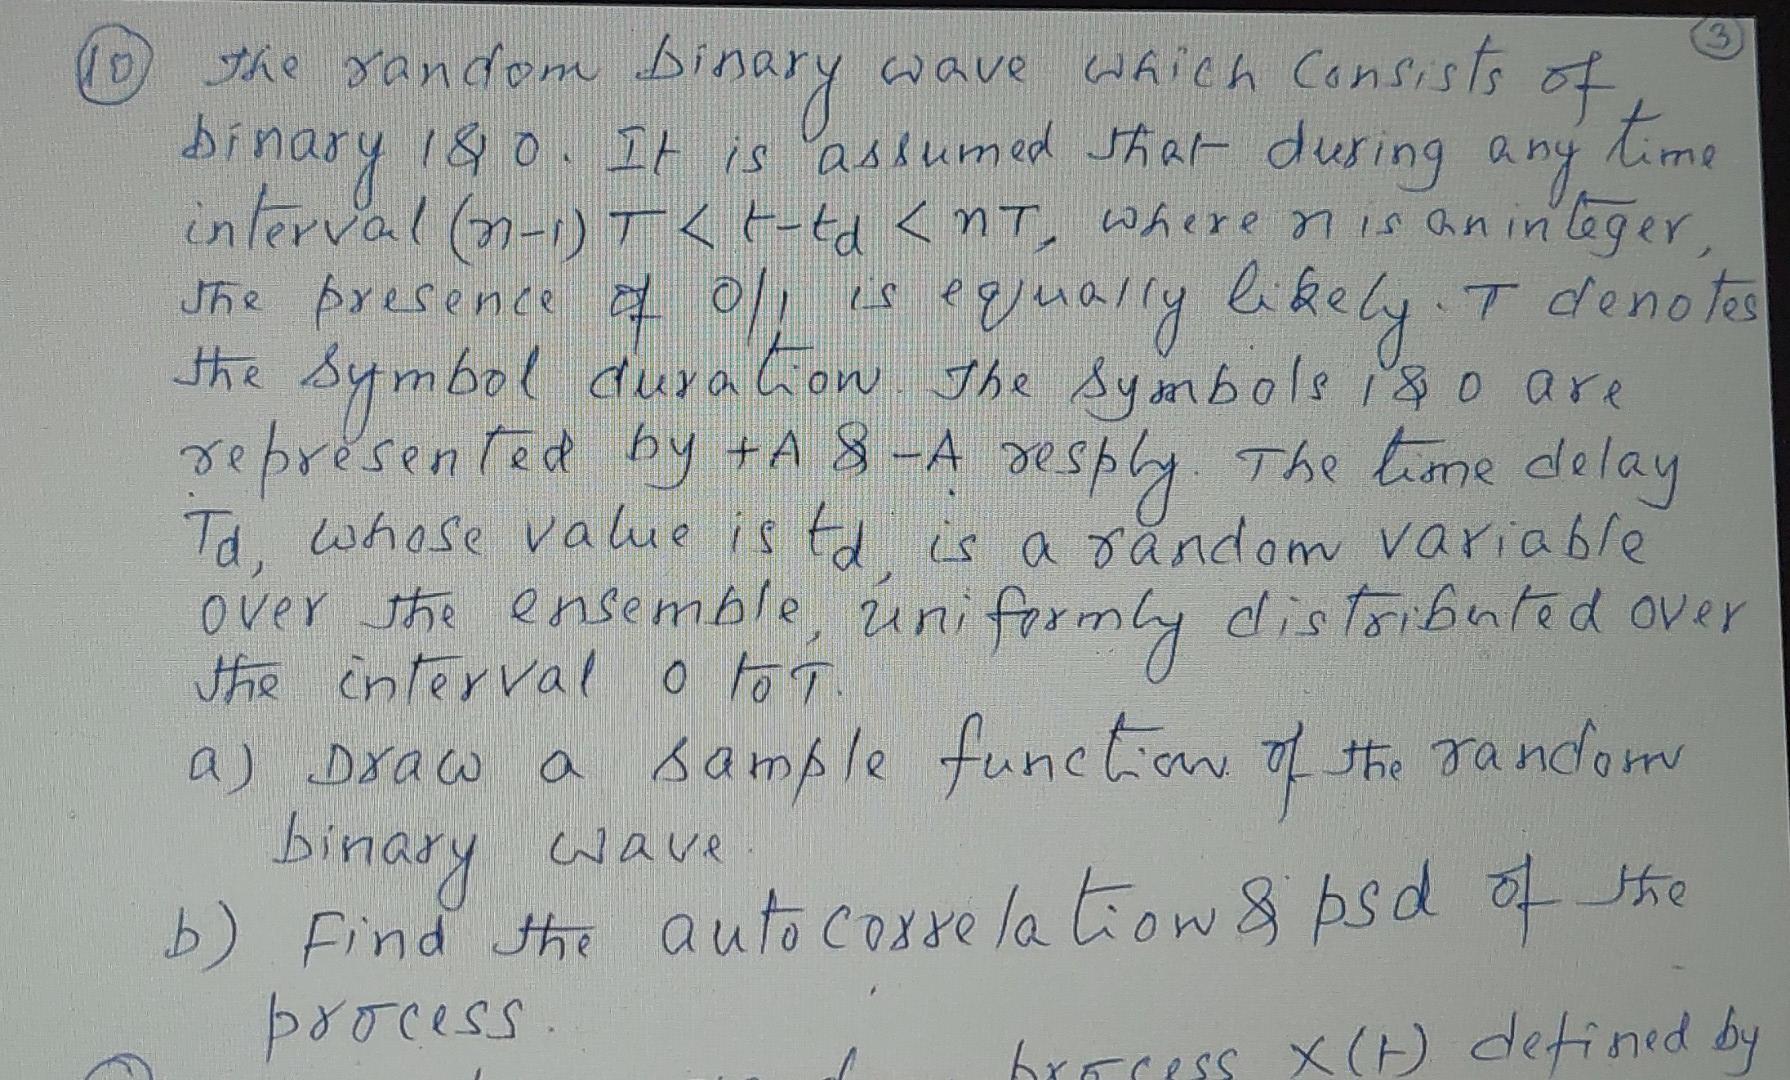 3
10 The random binary wave which consists of
binary 1 & 0. It is assumed that during any time
interval (n-1) T < t-td < nT, where n is an integer,
the presence of 0/1 is equally likely. T denotes
the symbol duration. The symbols 1 & 0 are
represented by +A & -A resply. The time delay
Td, whose value is td, is a random variable
over the ensemble, uniformly distributed over
the interval 0 to T.
a) Draw a sample function of the random
binary wave.
b) Find the autocorrelation & psd of the
process.
process X(t) defined by